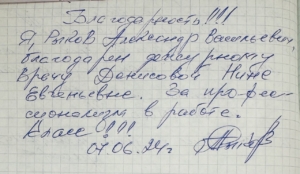 Благодарность!!!
Я, Рыков Александр Васильевич
благодарен дежурному
врачу Данисовой Нине
Евгеньевне. За профес-
сионализм в работе.
Класс!!!!
07.06.24г.